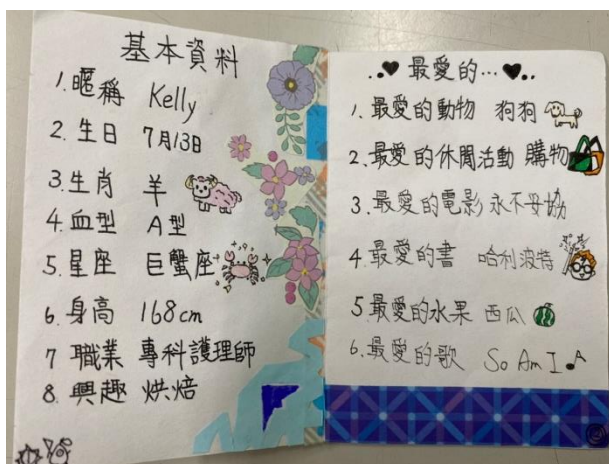 基本資料
1.暱稱 Kelly
2.生日 7月13日
3.生肖 羊
4.血型 A型
5.星座 巨蟹座
6.身高 168cm
7 職業 專科護理師
8.興趣 烘焙
最愛的…
1.最愛的動物 狗狗
2.最愛的休閒活動 購物
3.最愛的電影 永不妥協
4.最愛的書 哈利波特
5.最愛的水果 西瓜
6.最愛的歌 So Am I